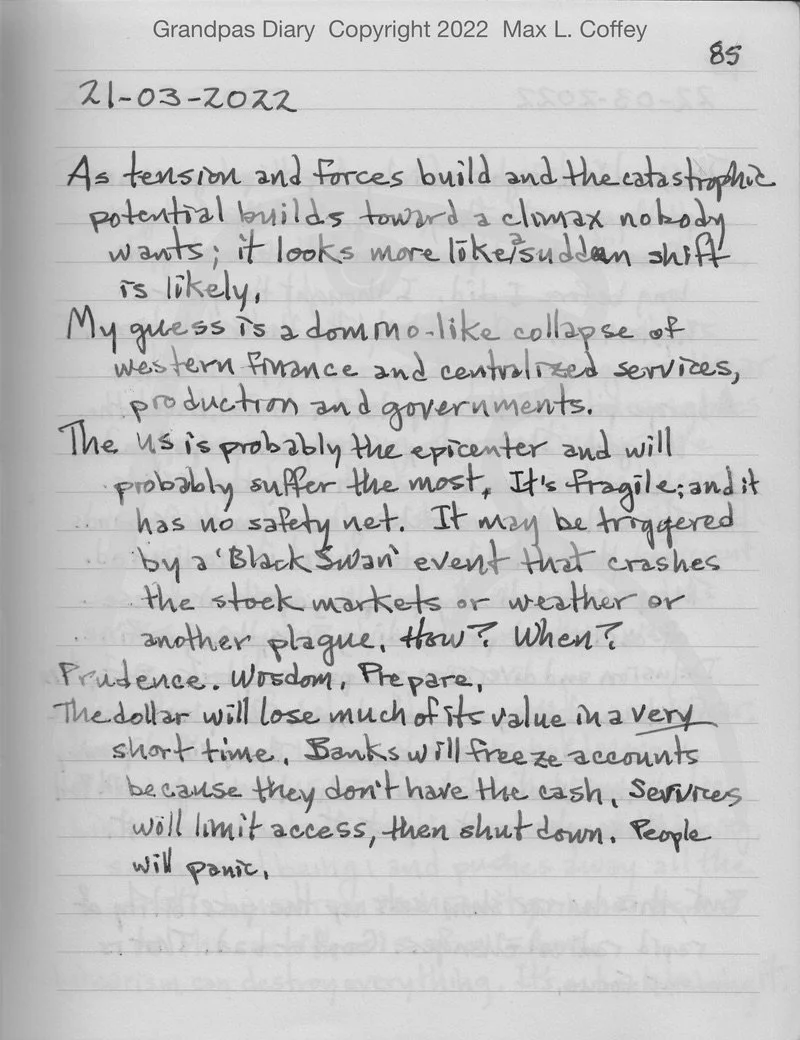 Grandpas Diary Copyright 2022 Max L. Coffey
85
21-03-2022
As tension and forces build and the catastrophic
potential builds toward a climax nobody
wants; it looks more like a sudden shift
is likely.
My guess is a domino-like collapse of
western finance and centralized services,
production and governments.
The US is probably the epicenter and will
probably suffer the most. It's fragile; and it
has no safety net. It may be triggered
by a 'Black Swan' event that crashes
the stock markets or weather or
another plague. How? When?
Prudence. Wisdom. Prepare.
The dollar will lose much of its value in a very
short time. Banks will freeze accounts
because they don't have the cash. Services
will limit access, then shut down. People
will panic.